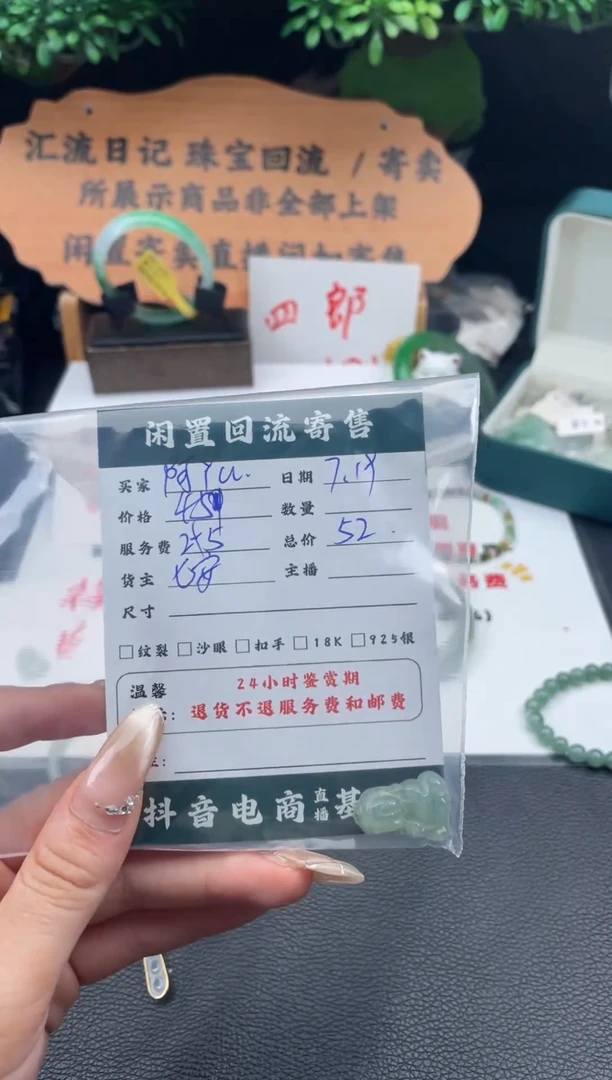 汇流日记 珠宝回流 / 寄卖
所展示商品非全部上架
闲置寄卖直播间如寄售
四郎
闲置回流寄售
买家 阿
日期 7.19
价格 450
数量
服务费 2+5
总价 52
货主
主播
尺寸
□纹裂 □沙眼 □扣手 □18K □925银
温馨
24小时鉴赏期
退货不退服务费和邮费
抖音电商 直播 基
马费